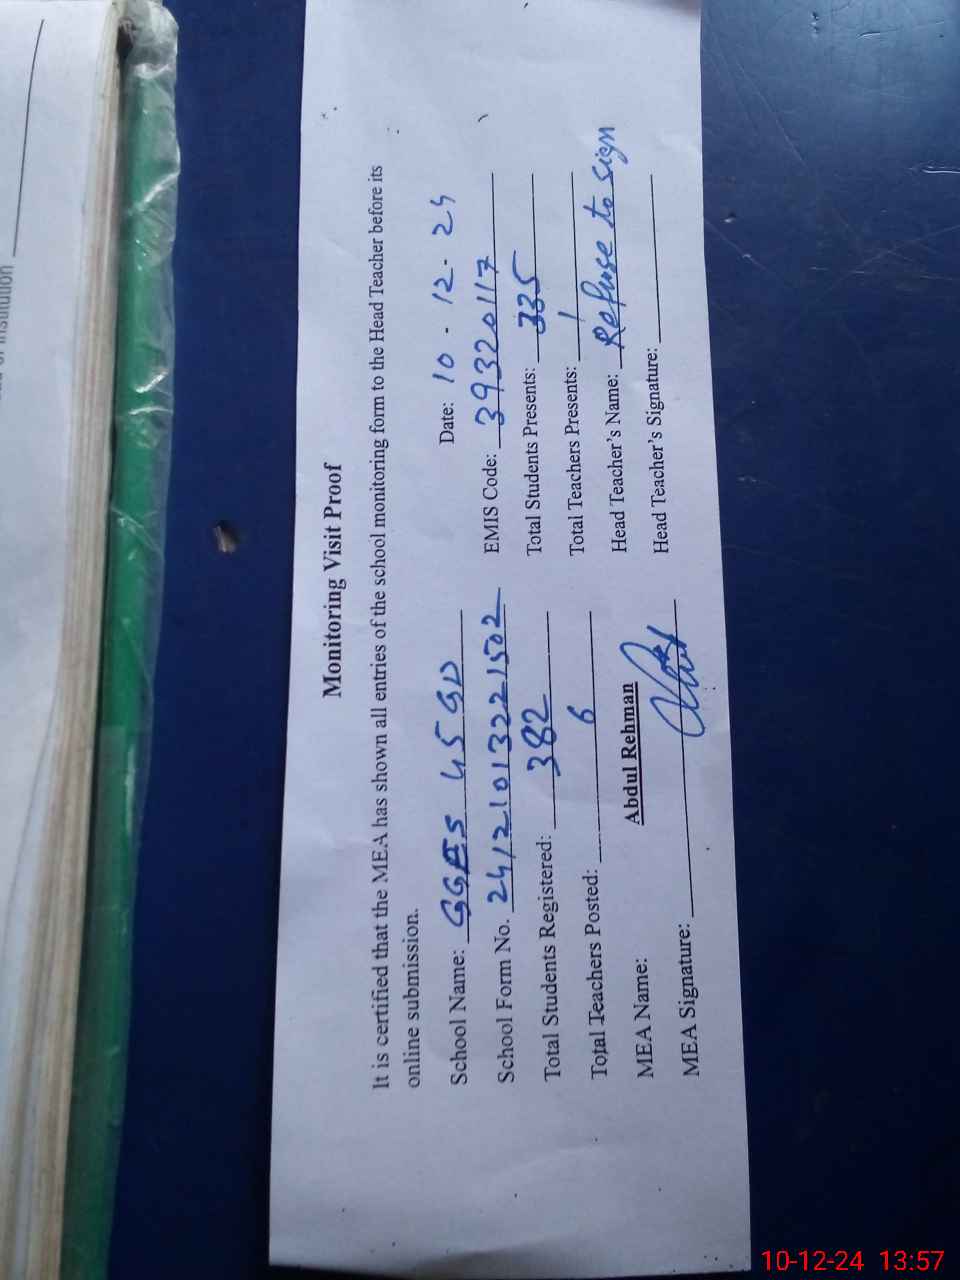 Monitoring Visit Proof
It is certified that the MEA has shown all entries of the school monitoring form to the Head Teacher before its
online submission.
School Name: GGES 45 GD Date: 10-12-24
School Form No. 24121013221502 EMIS Code: 39320117
Total Students Registered: 382 Total Students Presents: 335
Total Teachers Posted: 6 Total Teachers Presents: 1
MEA Name: Abdul Rehman Head Teacher's Name: Refuse to sign
MEA Signature: Head Teacher's Signature:
10-12-24 13:57